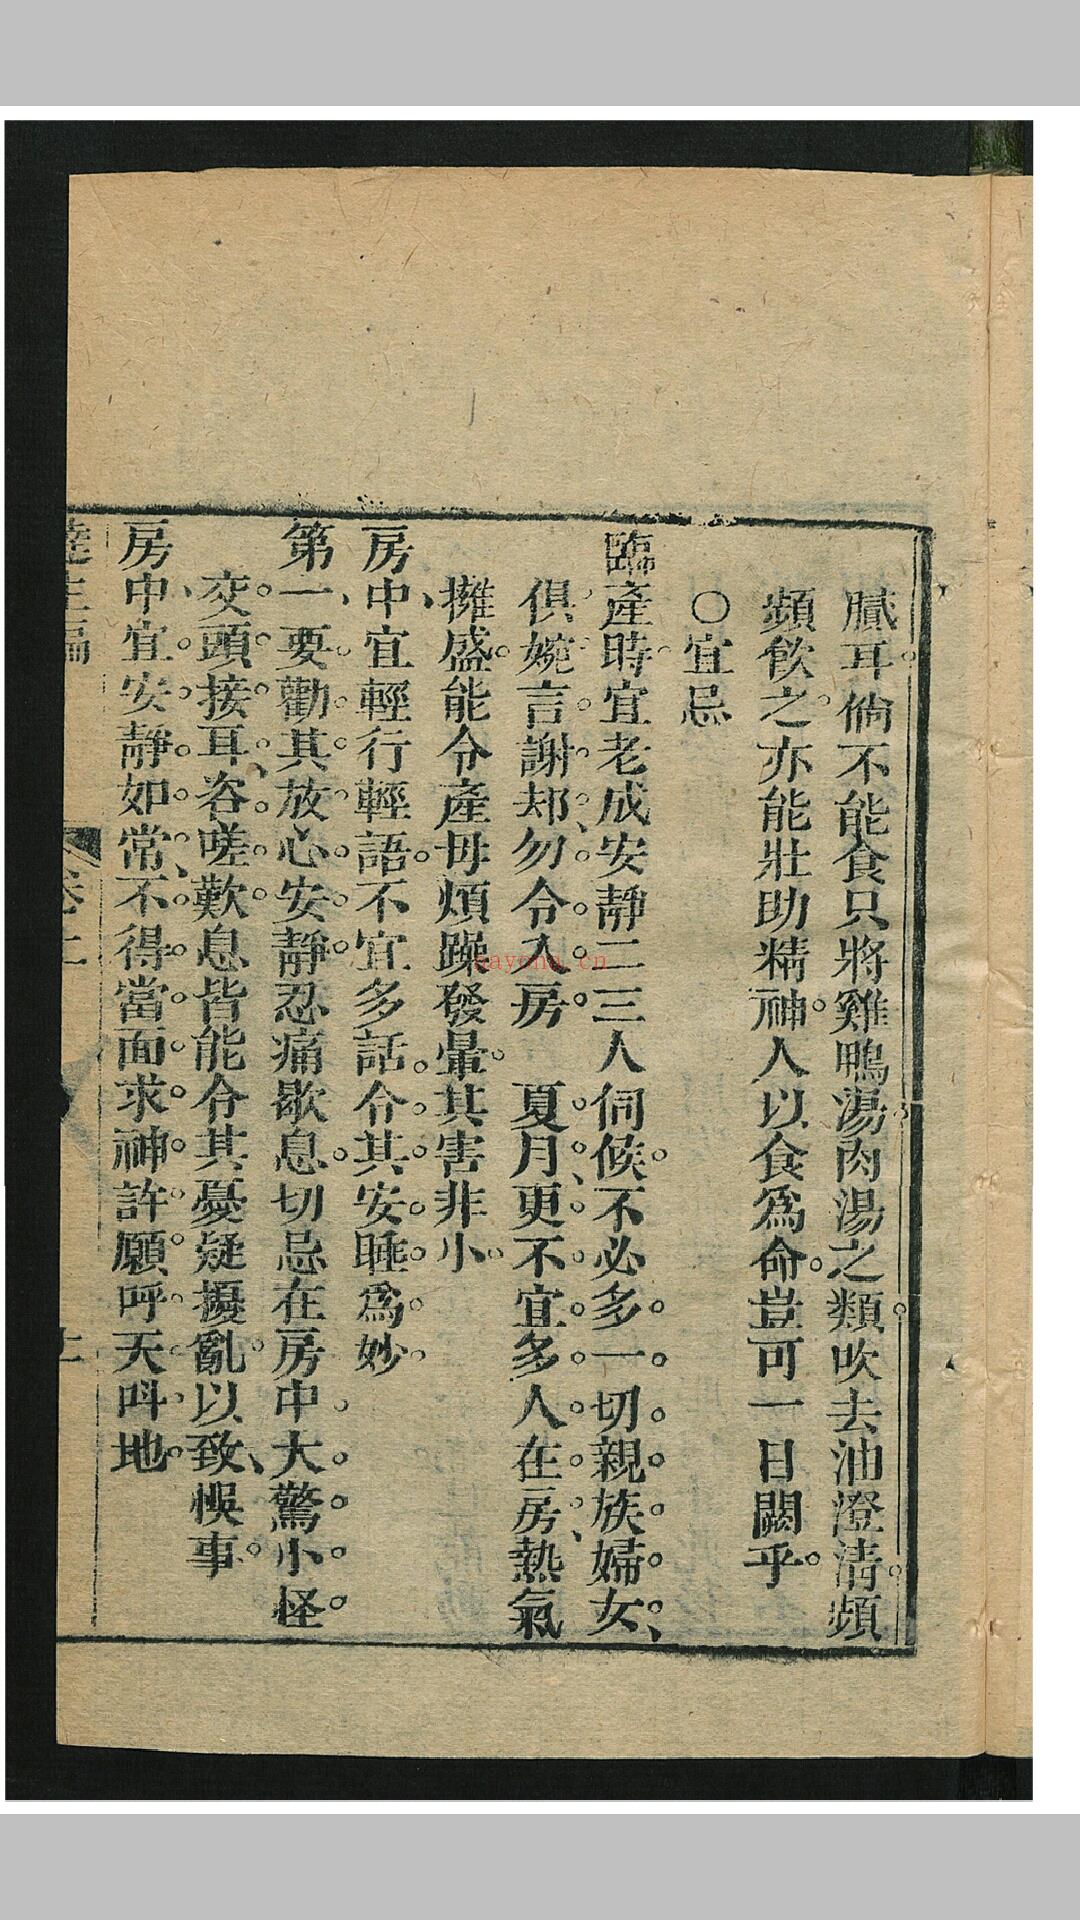 膩耳倘不能食只將雞鴨湯肉湯之類吹去油澄清頻
頻飲之亦能壯助精神人以食爲命豈可一日闕乎
○宜忌
臨產時宜老成安靜二三人伺候不必多一切親族婦女
俱婉言謝却勿令入房　夏月更不宜多人在房熱氣
擁盛能令產母煩躁發暈其害非小
房中宜輕行輕語不宜多話令其安睡爲妙
第一要勸其放心安靜忍痛歇息切忌在房中大驚小怪
交頭接耳咨嗟歎息皆能令其憂疑擾亂以致悞事
房中宜安靜如常不得當面求神許願呼天呌地
達生編
卷上
十
bayona.cn